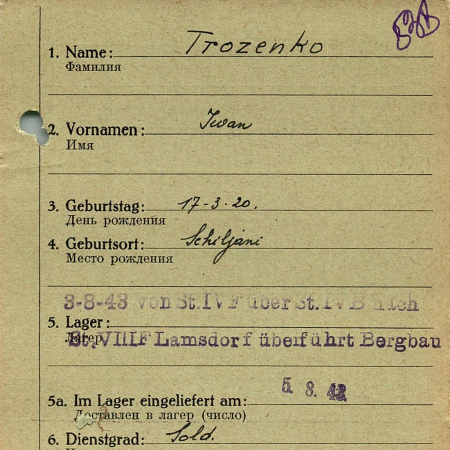 53B
1. Name: Trozenko
Фамилия
2. Vornamen: Iwan
Имя
3. Geburtstag: 17-3-20.
День рождения
4. Geburtsort: Schiljani
Место рождения
3-8-43 von St.IV F über St.IV B nach
5. Lager: St. VIII F Lamsdorf überführt Bergbau
Лагерь
5. 8. 43
5a. Im Lager eingeliefert am:
Доставлен в лагерь (число)
6. Dienstgrad: Sold.